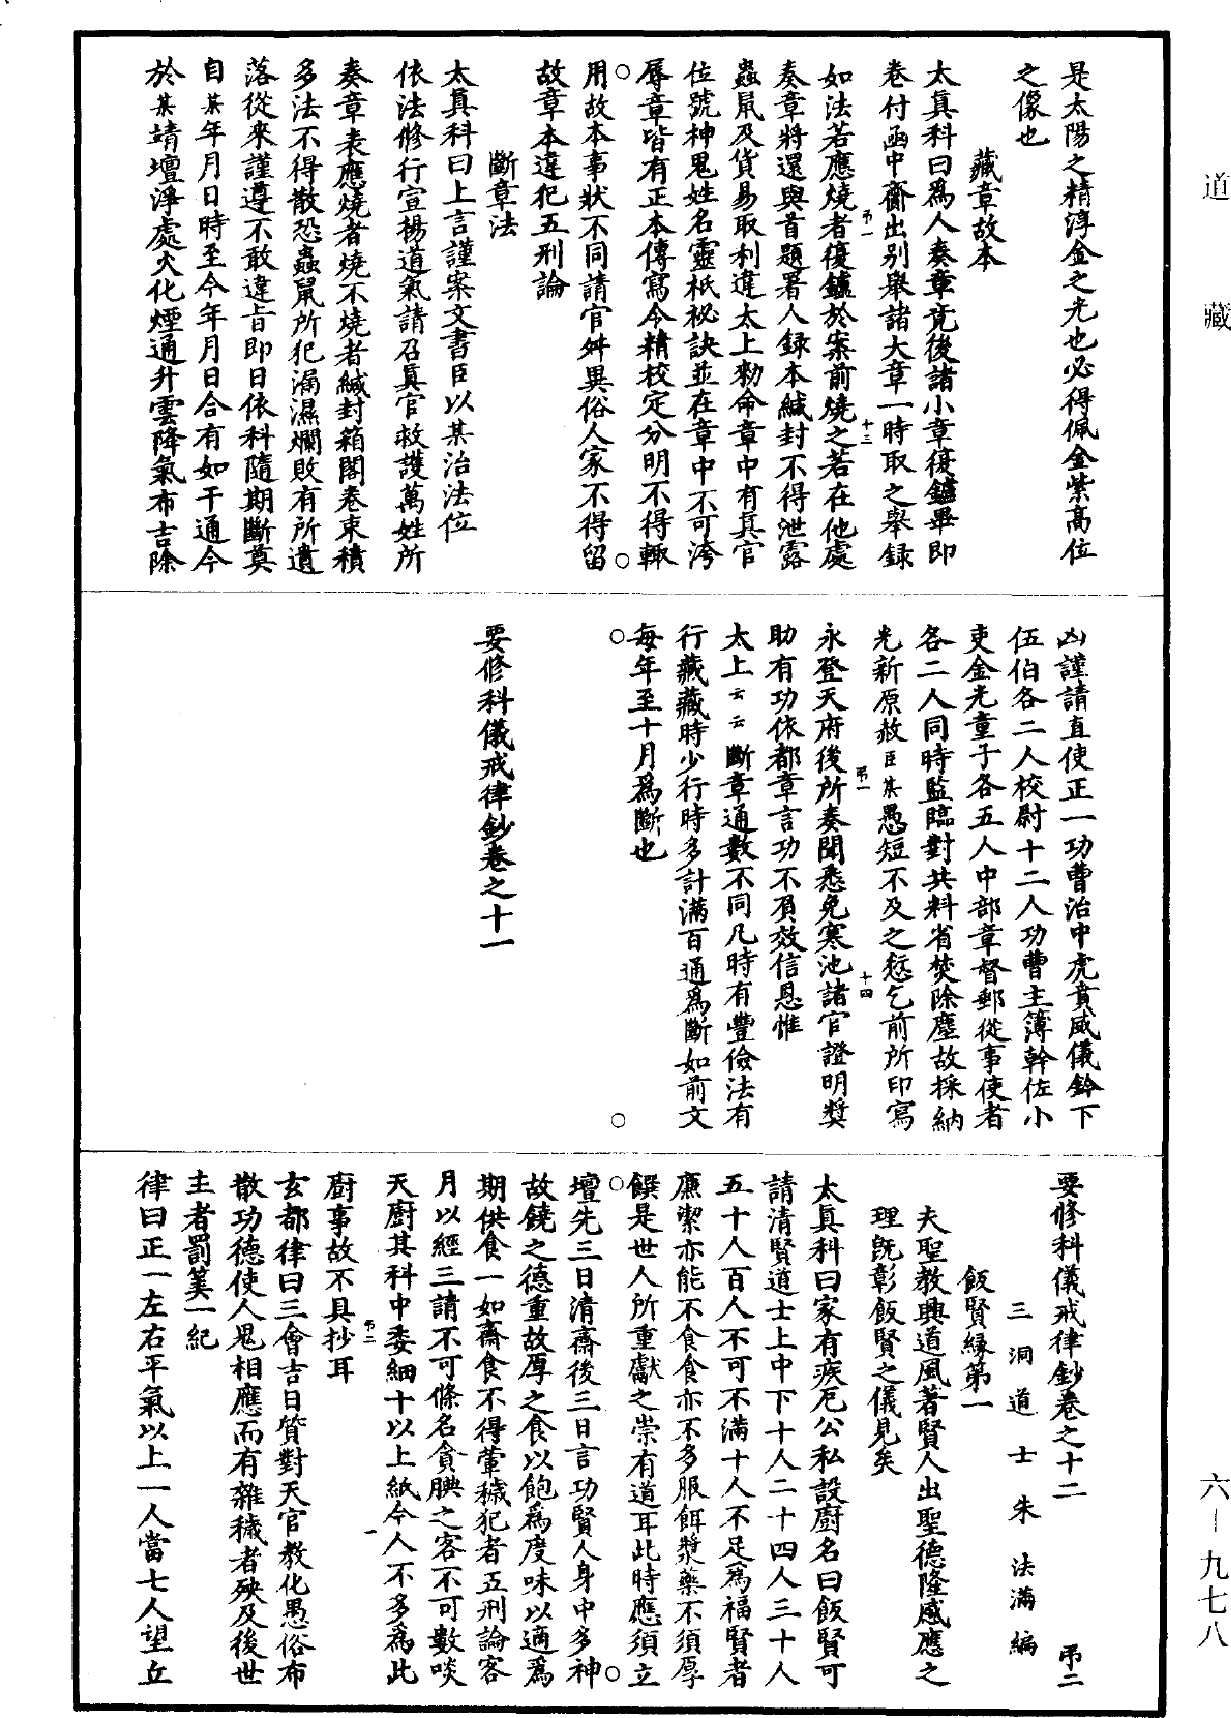 道藏
是太陽之精淳金之光也必得佩金紫高位
之像也
藏章故本
太真科曰爲人奏章竟後諸小章復鑪畢即
卷付函中齋出別舉諸大章一時取之舉録
如法若應燒者復鑪於案前燒之若在他處
弔一
十三
奏章將還與首題署人録本緘封不得泄露
蟲鼠及貨易取利違太上勑命章中有真官
位號神鬼姓名靈祇祕訣並在章中不可誇
辱章皆有正本傳寫今精校定分明不得輒
用故本事狀不同請官舛異俗人家不得留
故章本違犯五刑論
斷章法
太真科曰上言謹案文書臣以某治法位
依法修行宣揚道氣請召真官救護萬姓所
奏章表應燒者燒不燒者緘封箱閣卷束積
多法不得散恐蟲鼠所犯漏濕爛敗有所遺
落從來謹遵不敢違旨即日依科隨期斷奠
自某年月日時至今年月日合有如干通今
於某靖壇淨處火化煙通升雲降氣布吉除
凶謹請直使正一功曹治中虎賁威儀鈴下
伍伯各二人校尉十二人功曹主簿幹佐小
吏金光童子各五人中部章督郵從事使者
各二人同時監臨對共料省焚除塵故採納
光新原赦臣某愚短不及之愆乞前所印寫
弔一
十四
永登天府後所奏聞悉免寒池諸官證明奬
助有功依都章言功不負效信恩惟
太上云云斷章通數不同凡時有豐儉法有
行藏藏時少行時多計滿百通爲斷如前文
每年至十月爲斷也
要修科儀戒律鈔卷之十一
要修科儀戒律鈔卷之十二
弔二
三洞道士朱法滿編
飯賢緣第一
夫聖教興道風著賢人出聖德隆感應之
理既彰飯賢之儀見矣
太真科曰家有疾厄公私設廚名曰飯賢可
請清賢道士上中下十人二十四人三十人
五十人百人不可不滿十人不足爲福賢者
廉潔亦能不食食亦不多服餌漿藥不須厚
饌是世人所重獻之崇有道耳此時應須立
壇先三日清齋後三日言功賢人身中多神
故饒之德重故厚之食以飽爲度味以適爲
期供食一如齋食不得葷穢犯者五刑論客
月以經三請不可條名貪腆之客不可數啖
天廚其科中委細十以上紙今人不多爲此
弔二
一
廚事故不具抄耳
玄都律曰三會吉日質對天官教化愚俗布
散功德使人鬼相應而有雜穢者殃及後世
主者罰筭一紀
律曰正一左右平氣以上一人當七人望丘
六—九七八